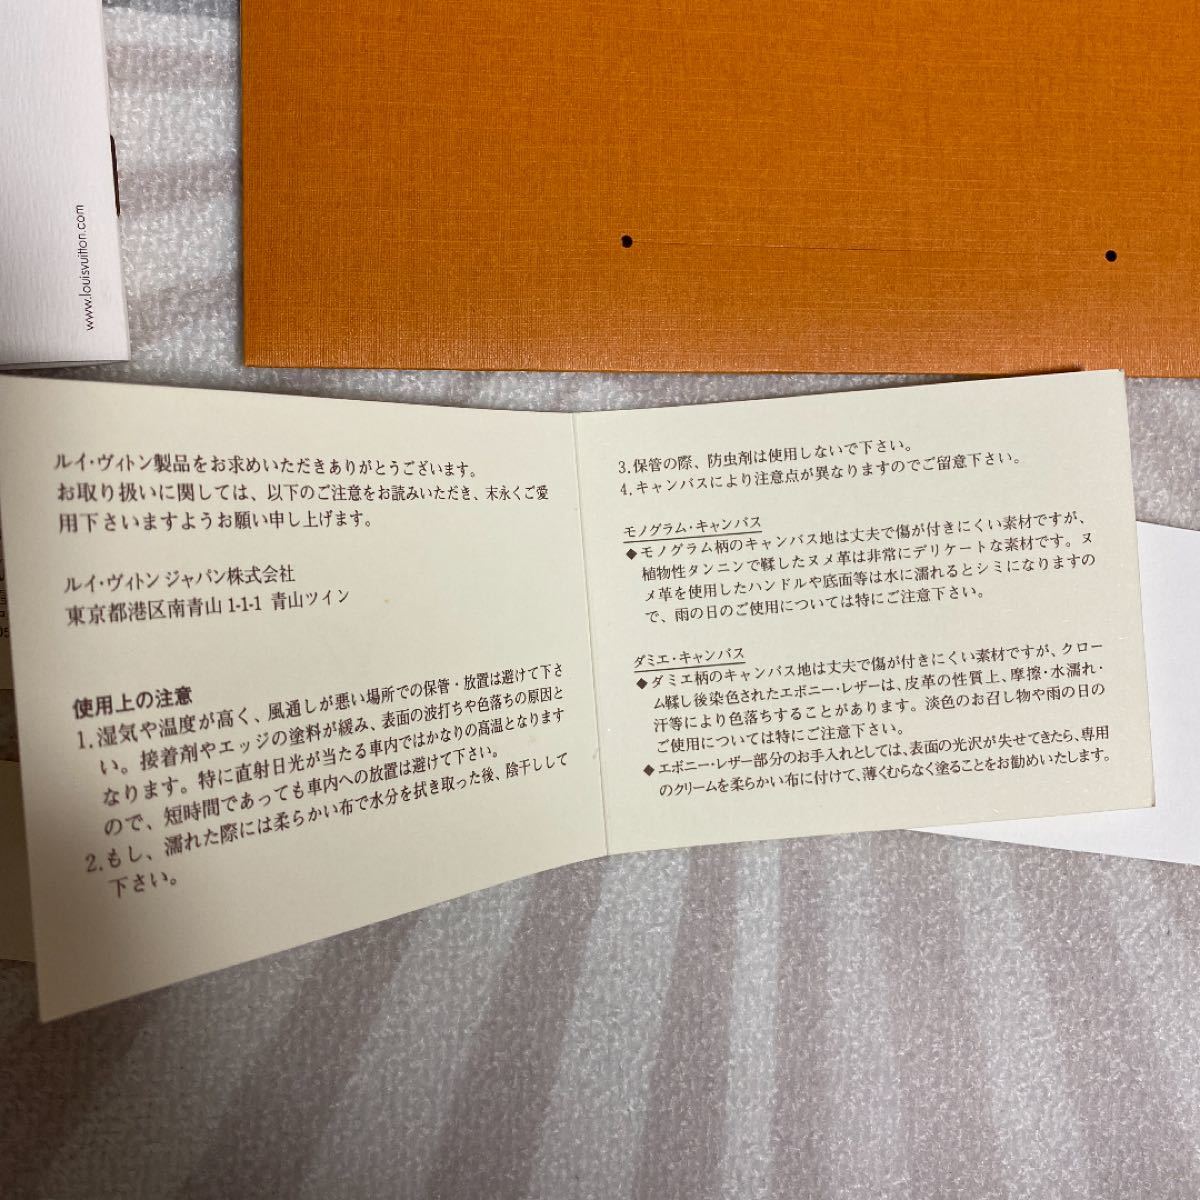 www.louisvuitton.com
ルイ・ヴィトン製品をお求めいただきありがとうございます。
お取り扱いに関しては、以下のご注意をお読みいただき、末永くご愛
用下さいますようお願い申し上げます。
ルイ・ヴィトン ジャパン株式会社
東京都港区南青山 1-1-1 青山ツイン
使用上の注意
1.湿気や温度が高く、風通しが悪い場所での保管・放置は避けて下さ
い。接着剤やエッジの塗料が緩み、表面の波打ちや色落ちの原因と
なります。特に直射日光が当たる車内ではかなりの高温となります
ので、短時間であっても車内への放置は避けて下さい。
2.もし、濡れた際には柔らかい布で水分を拭き取った後、陰干しして
下さい。
3.保管の際、防虫剤は使用しないで下さい。
4.キャンバスにより注意点が異なりますのでご留意下さい。
モノグラム・キャンバス
◆モノグラム柄のキャンバス地は丈夫で傷が付きにくい素材ですが、
植物性タンニンで鞣したヌメ革は非常にデリケートな素材です。ヌ
メ革を使用したハンドルや底面等は水に濡れるとシミになりますの
で、雨の日のご使用については特にご注意下さい。
ダミエ・キャンバス
◆ダミエ柄のキャンバス地は丈夫で傷が付きにくい素材ですが、クロー
ム鞣し後染色されたエボニー・レザーは、皮革の性質上、摩擦・水濡れ・
汗等により色落ちすることがあります。淡色のお召し物や雨の日の
ご使用については特にご注意下さい。
◆エボニー・レザー部分のお手入れとしては、表面の光沢が失せてきたら、専用
のクリームを柔らかい布に付けて、薄くむらなく塗ることをお勧めいたします。